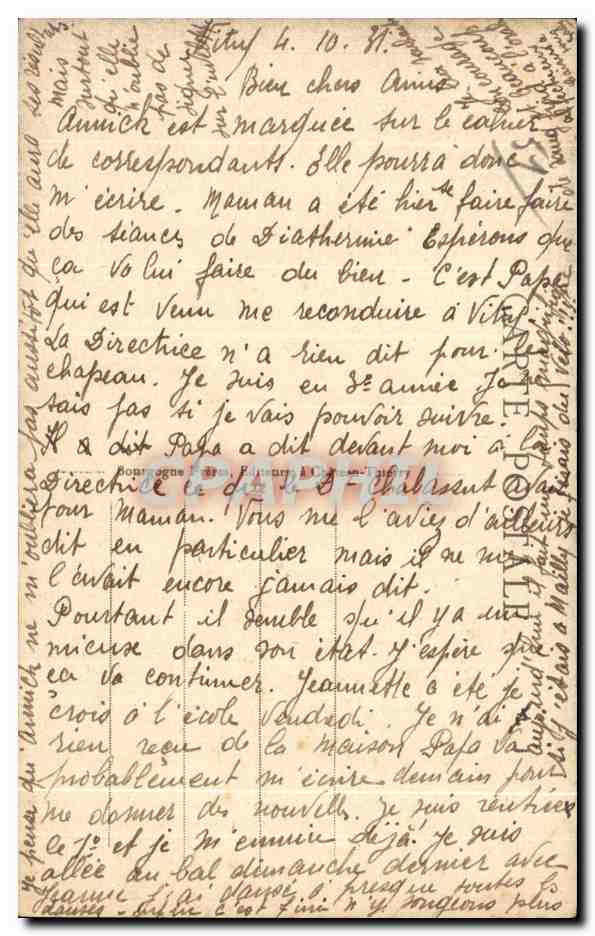 Vitry 4. 10. 31.
Bien chers Amis
Annick est marquée sur le cahier
de correspondants. Elle pourra donc
m'écrire. Maman a été hier se faire faire
des séances de Diathermie Espérons que
ça va lui faire du bien - C'est Papa
qui est venu me reconduire à Vitry.
La Directrice n'a rien dit pour le
chapeau. Je suis en 3e année Je ne
sais pas si je vais pouvoir suivre.
Il a dit Papa a dit devant moi à la
Bourgogne Frères, Editeurs à Château-Thierry
Directrice ce que le Dr Chabassent
pour Maman. Vous me l'aviez d'ailleurs
dit en particulier mais il ne me
l'avait encore jamais dit.
Pourtant il semble qu'il y a un
mieux dans son état. J'espère que
ça va continuer. Jeannette a été je
crois à l'école Vendredi. Je n'ai
rien reçu de la maison Papa va
probablement m'écrire demain pour
me donner des nouvelles. Je suis rentrée
le 1er et je m'ennuie déjà! Je suis
allée au bal dimanche dernier avec
Jeanne J'ai dansé à presque toutes les
danses - c'est fini n'y songeons plus
Je pense qu'Annick ne m'oubliera pas aussitôt qu'elle aura ses
mais
surtout
qu'elle
n'oublie
pas de
signer
sur
CARTE POSTALE
aujourd'hui il fait un temps
si j'étais à Mailly je ferais du Vélo!!!
CPAPHIL